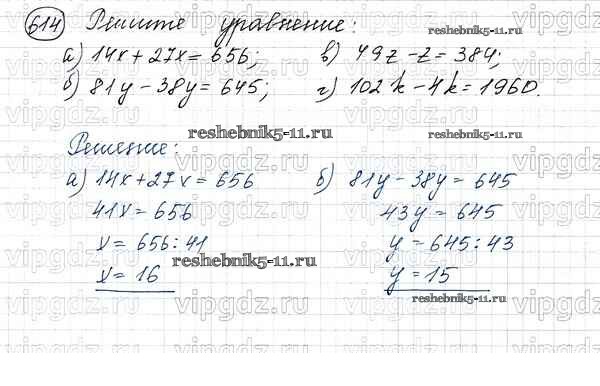 614 Решите уравнение:
а) 14x + 27x = 656; в) 49z - z = 384;
б) 81y - 38y = 645; г) 102k - 4k = 1960.
reshebnik5-11.ru
Решение:
reshebnik5-11.ru
а) 14x + 27x = 656 б) 81y - 38y = 645
41x = 656 43y = 645
x = 656 : 41 y = 645 : 43
reshebnik5-11.ru
x = 16 y = 15
reshebnik5-11.ru
vipgdz.ru